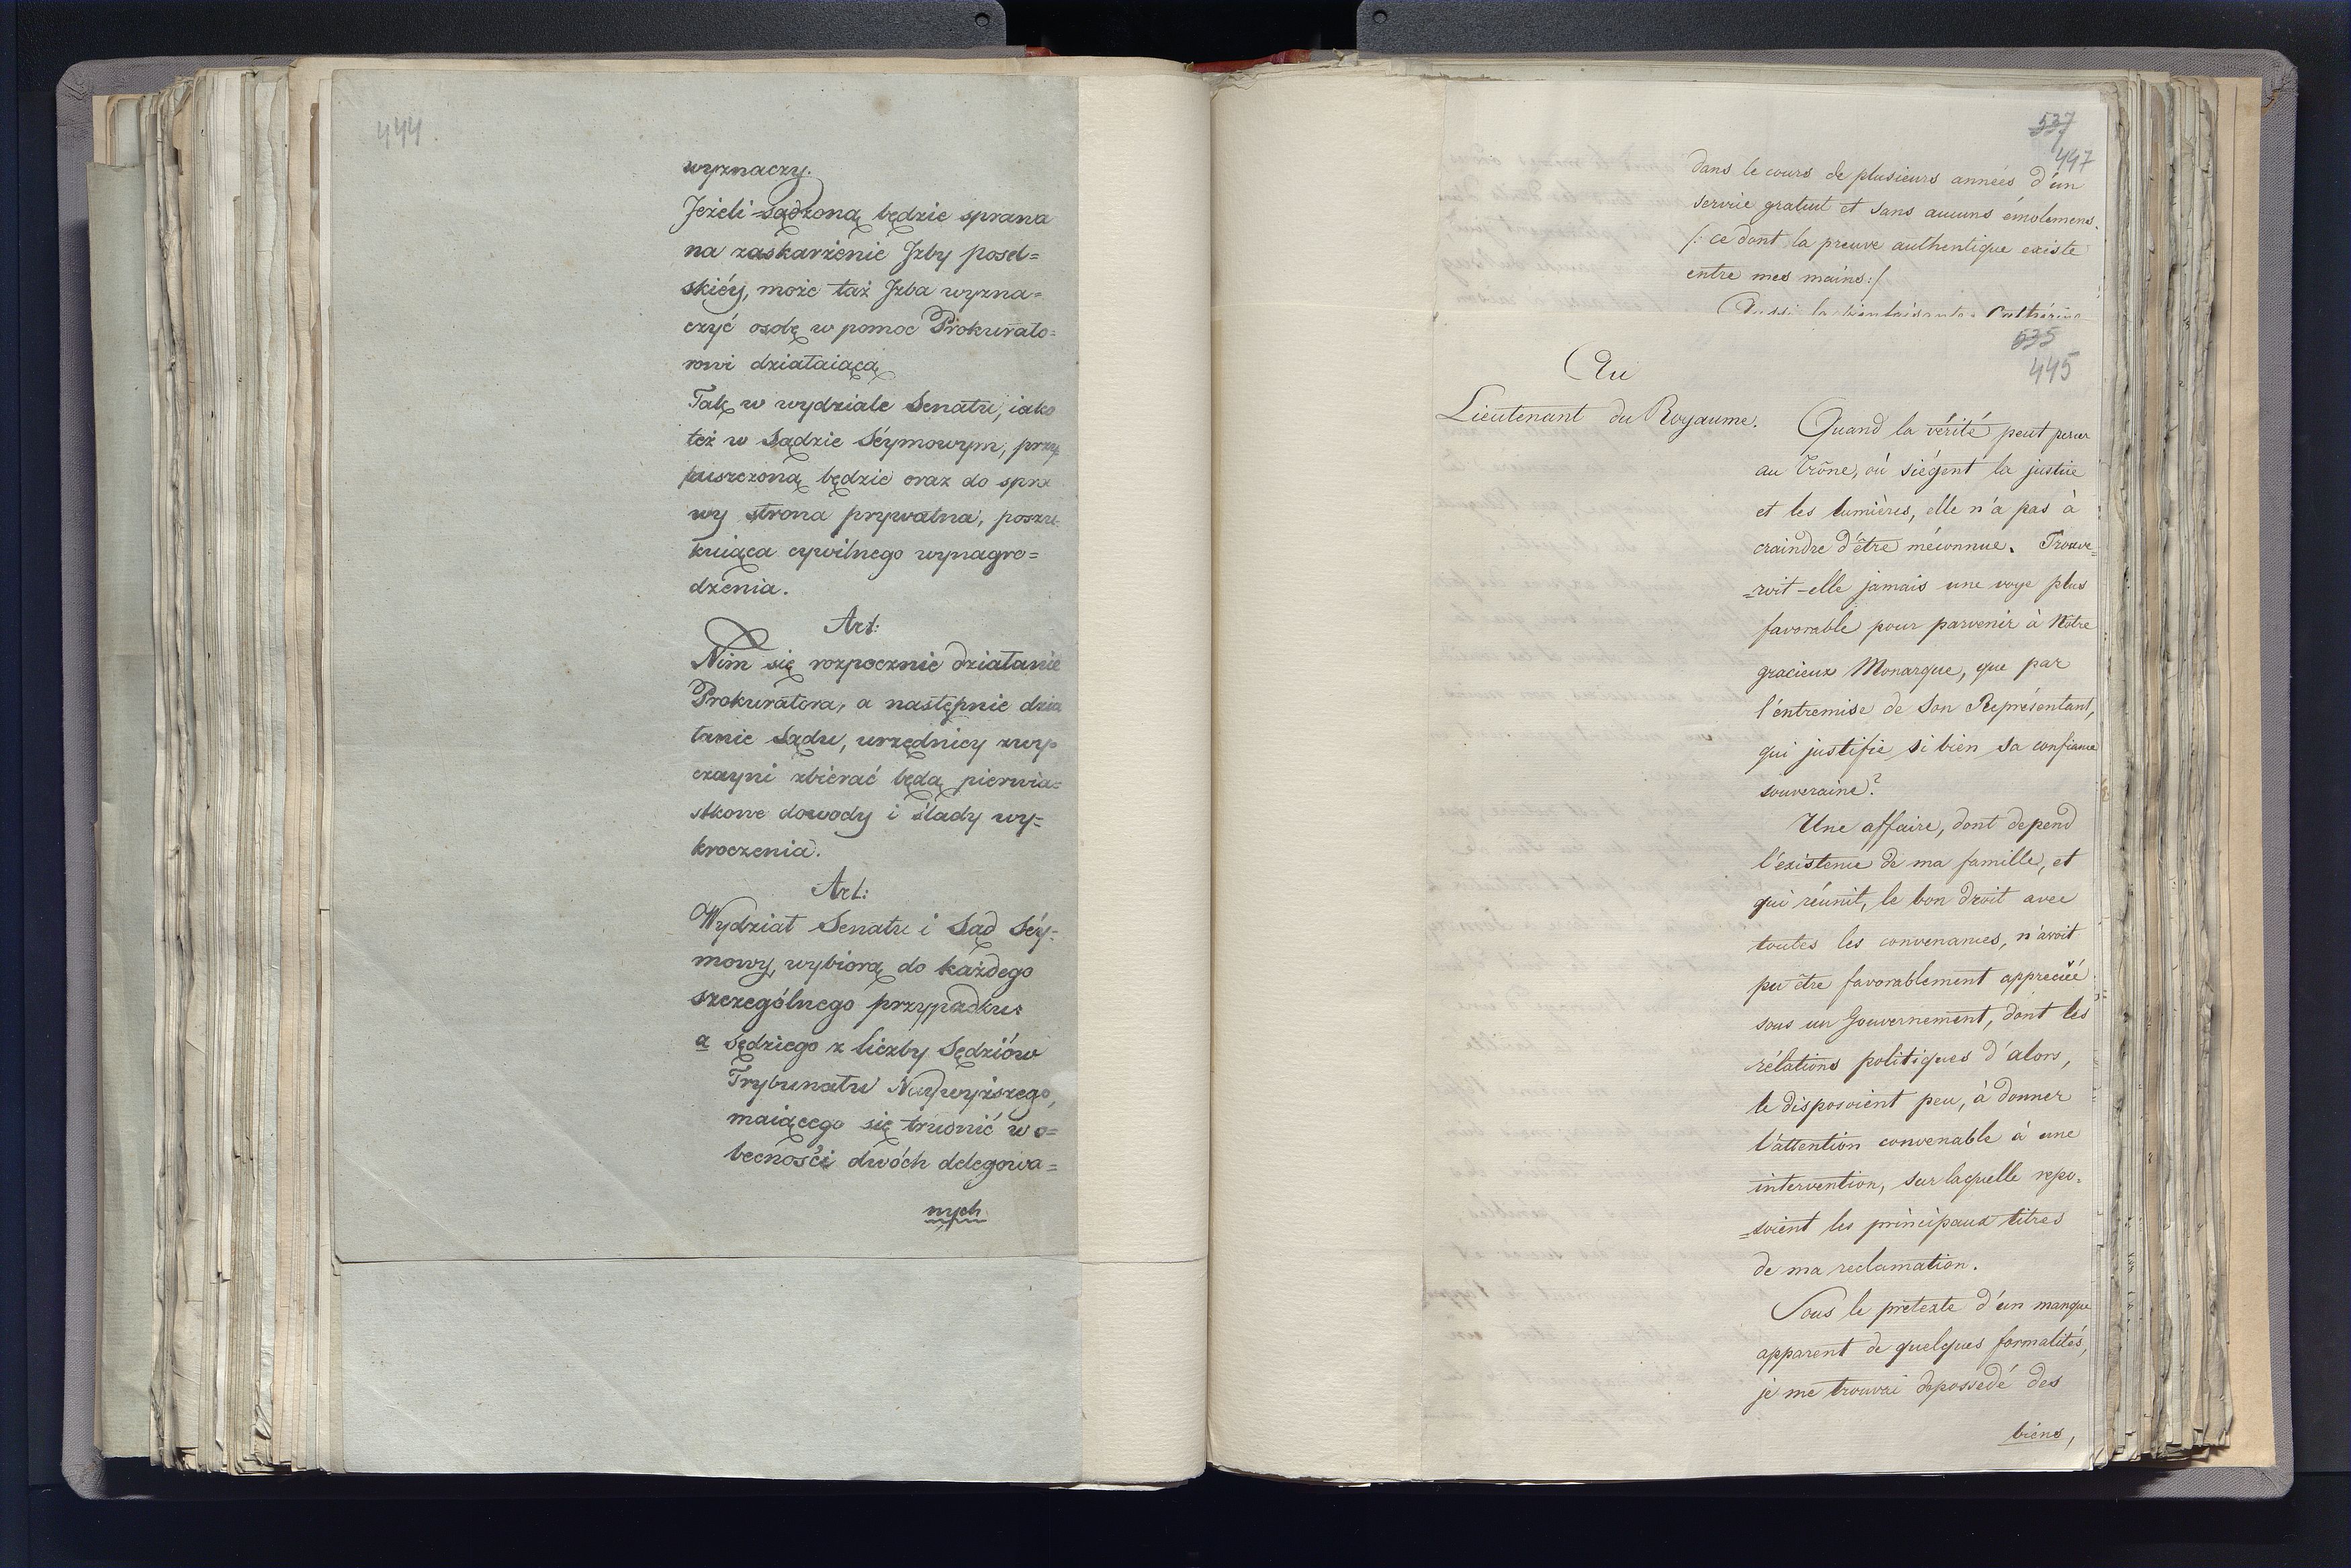 444
wyznaczy.
Jeżeli sądzoną będzie sprawa
na zaskarżenie Jzby posel=
skiéy, może taż Jzba wyzna=
czyć osobę w pomoc Prokurato=
rowi działaiącą
Tak w wydziale Senatu, iako
też w Sądzie Séymowym, przy
puszczoną będzie oraz do spra
wy strona prywatna, poszu-
kuiąca cywilnego wynagro=
dzenia.
Art:
Nim się rozpocznie działanie
Prokuratora, a następnie dzia
łanie Sądu, urzędnicy zwy
czayni zbierać będą pierwia=
stkowe dowody i ślady wy-
kroczenia.
Art:
Wydział Senatu i Sąd Séy-
mowy, wybiorą do każdego
szczególnego przypadku:
a sędziego z liczby Sędziów
Trybunału Naywyższego,
maiącego się trudnić w o=
becności dwóch delegowa=
nych
537
447
dans le cours de plusieurs années d'un
service gratuit et sans aucuns émolumens.
/: ce dont la preuve authentique existe
entre mes mains:/
Aussi la bienfaisante Cathérine
535
445
Au
Lieutenant du Royaume.
Quand la vérité peut percer
au Trône, où siégent la justice
et les lumières, elle n'a pas à
craindre d'être méconnue. Trouve-
=roit-elle jamais une voye plus
favorable pour parvenir à Notre
gracieux Monarque, que par
l'entremise de Son Représentant,
qui justifie si bien sa confiance
souveraine?
Une affaire, dont depend
l'existence de ma famille, et
qui réunit, le bon droit avec
toutes les convenances, n'avoit
pu être favorablement appreciée
sous un Gouvernement, dont les
rélations politiques d'alors,
le disposoient peu, à donner
l'attention convenable à une
intervention, sur laquelle repo-
=soient les principaux titres
de ma reclamation.
Sous le prétexte d'un manque
apparent de quelques formalités,
je me trouvai depossedé des
biens,